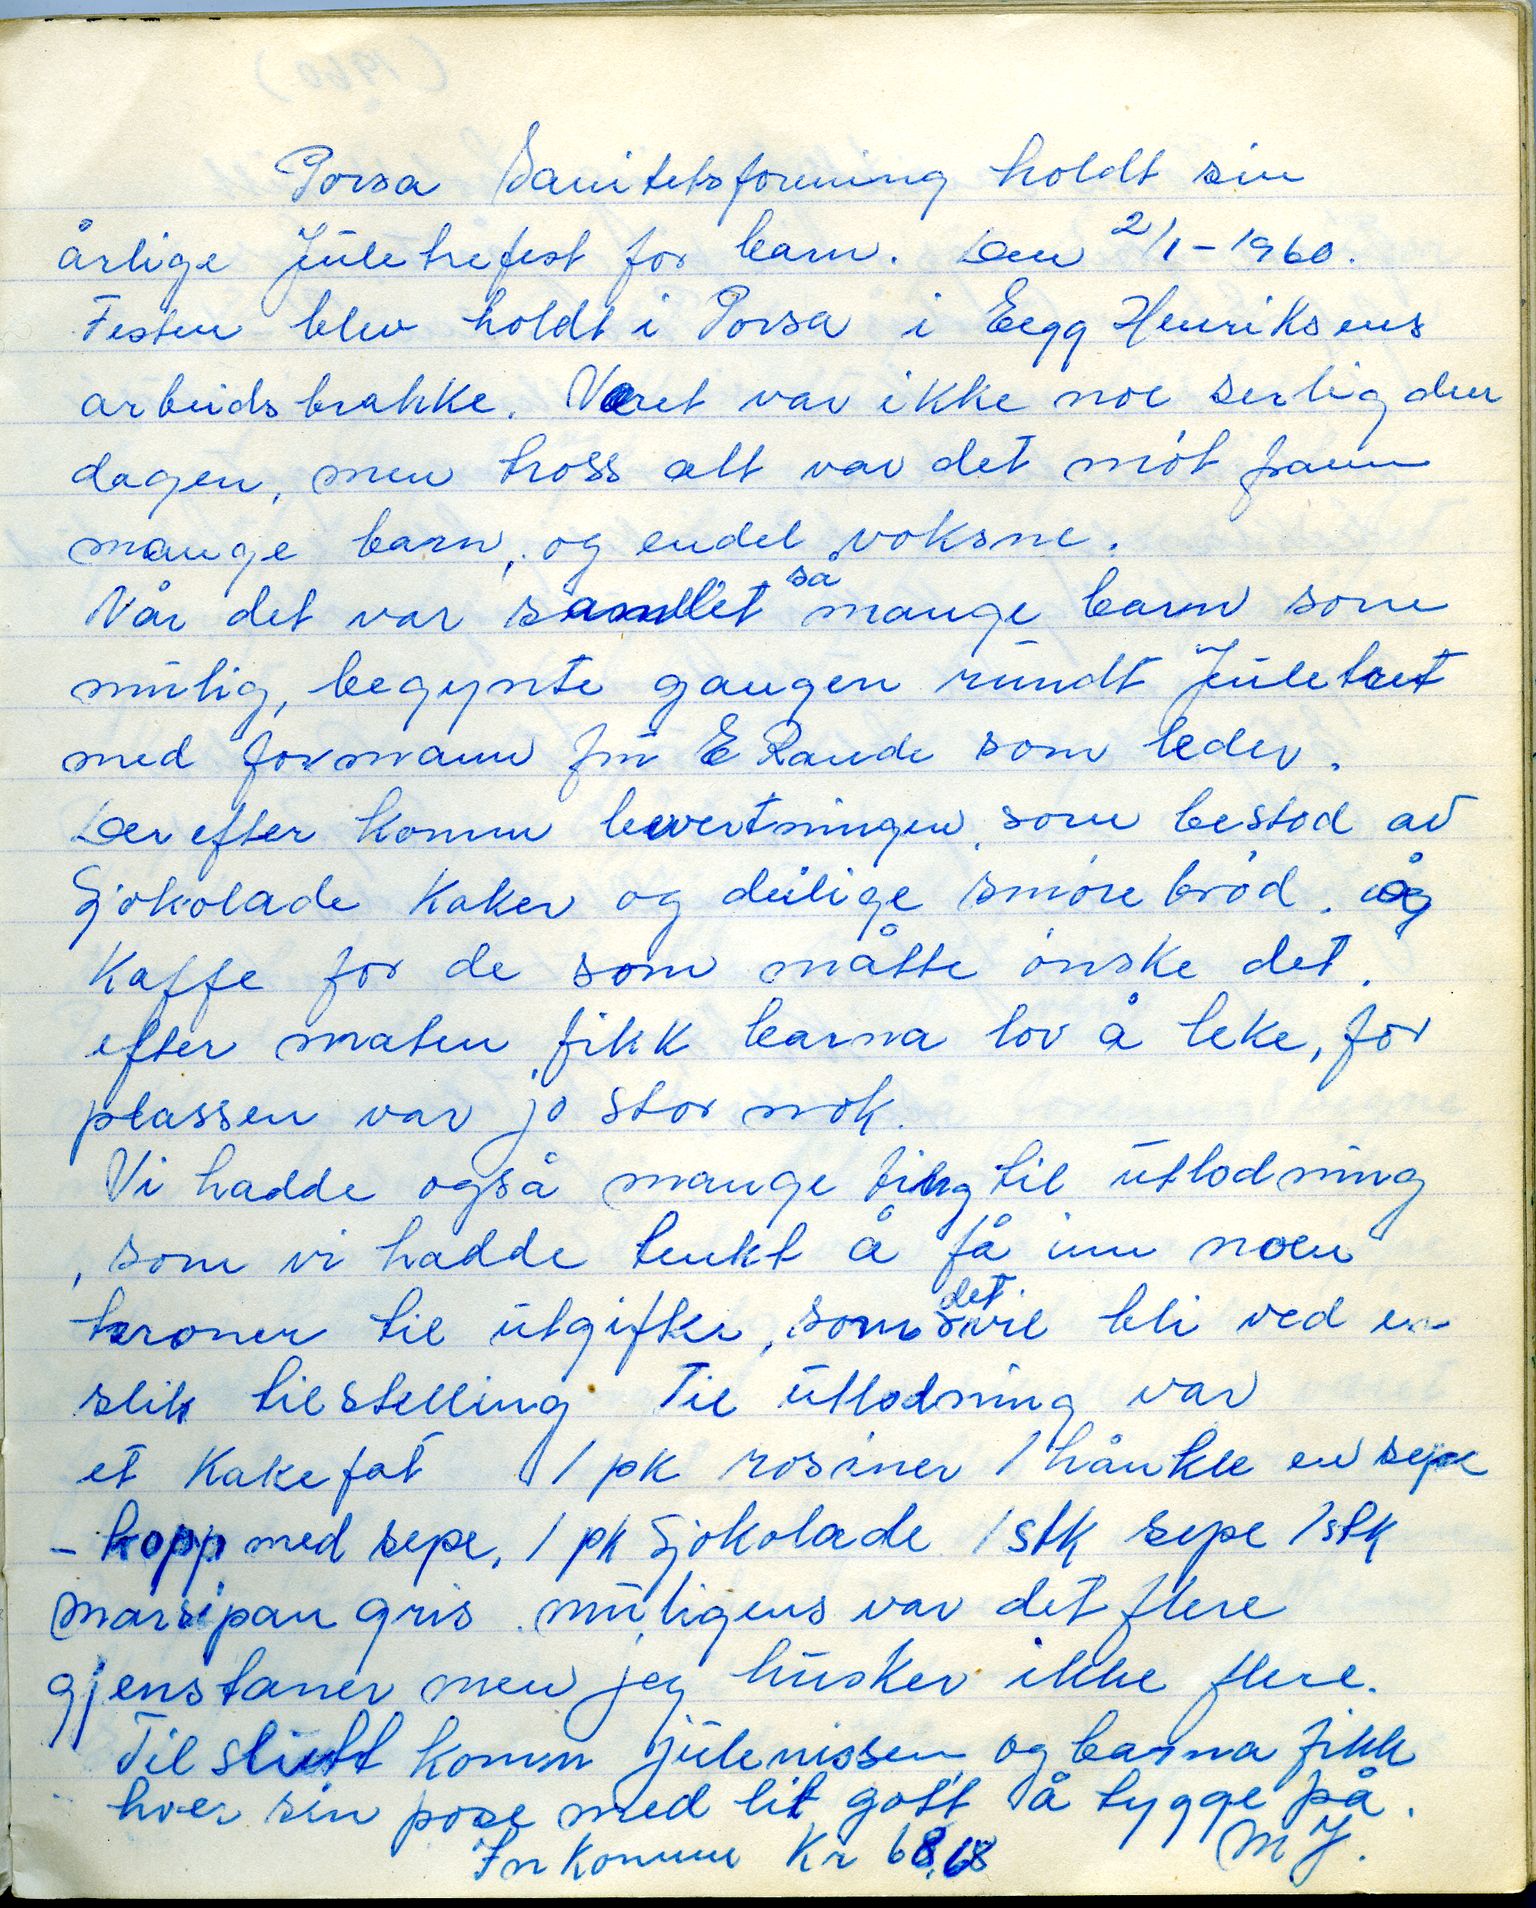 Porsa Sanitetsforening holdt sin
årlige Juletrefest for barn. Den 2/1-1960.
Festen blev holdt i Porsa i Eegg Henriksens
arbeidsbrakke. Veret var ikke noe serlig den
dagen, men tross alt var det møt fram
mange barn, og endel voksne.
Når det var samlet så mange barn som
mulig, begynte gangen rundt Juletret
med formann fru E Rande som leder.
Der efter komm bevertningen, som bestod av
Sjokolade Kaker og deilige smørebrød. og
Kaffe for de som måtte ønske det.
efter maten fikk barna lov å leke, for
plassen var jo stor nok.
Vi hadde også mange ting til utlodning
, som vi hadde tenkt å få inn noen
kroner til utgifter, som det vil bli ved en
slik tilstelling Til utlodning var
et Kakefat 1 pk rosiner 1 hånkle en sepe
- kopp med sepe, 1 pk Sjokolade 1 stk sepe 1 stk
marsipan gris muligens var det flere
gjenstaner men jeg husker ikke flere.
Til slutt komm julenissen og barna fikk
hver sin pose med lit gott å tygge på.
Inkomm Kr 68,68 M J.